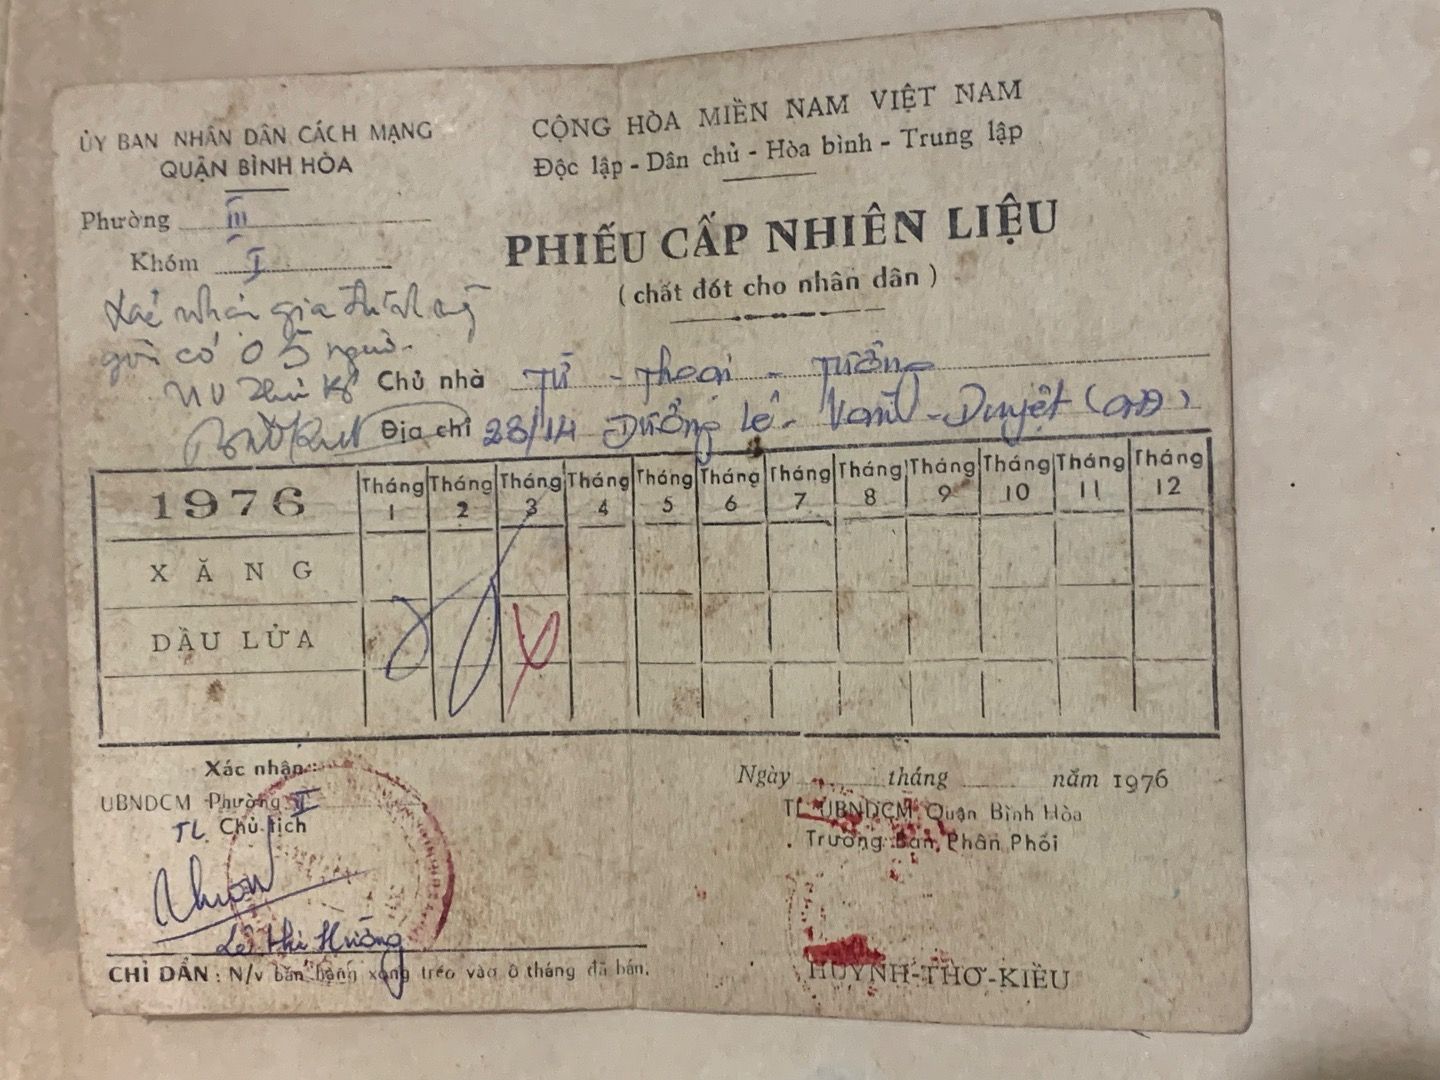 ỦY BAN NHÂN DÂN CÁCH MẠNG
QUẬN BÌNH HÒA
Phường III
Khóm I
CỘNG HÒA MIỀN NAM VIỆT NAM
Độc lập - Dân chủ - Hòa bình - Trung lập
PHIẾU CẤP NHIÊN LIỆU
(chất đốt cho nhân dân)
gia đình
có 05 người
Chủ nhà Từ - Thoại - Tường
Địa chỉ 23/14 Đường Lê - Văn - Duyệt (GĐ)
1976 Tháng 1 Tháng 2 Tháng 3 Tháng 4 Tháng 5 Tháng 6 Tháng 7 Tháng 8 Tháng 9 Tháng 10 Tháng 11 Tháng 12
XĂNG
DẦU LỬA
Xác nhận
UBNDCM Phường III
TL. Chủ tịch
Lê Thị Hường
CHỈ DẪN: N/v bán hàng xong tréo vào ô tháng đã bán.
Ngày tháng năm 1976
TL UBNDCM Quận Bình Hòa
Trưởng Ban Phân Phối
HUỲNH-THƠ-KIỀU